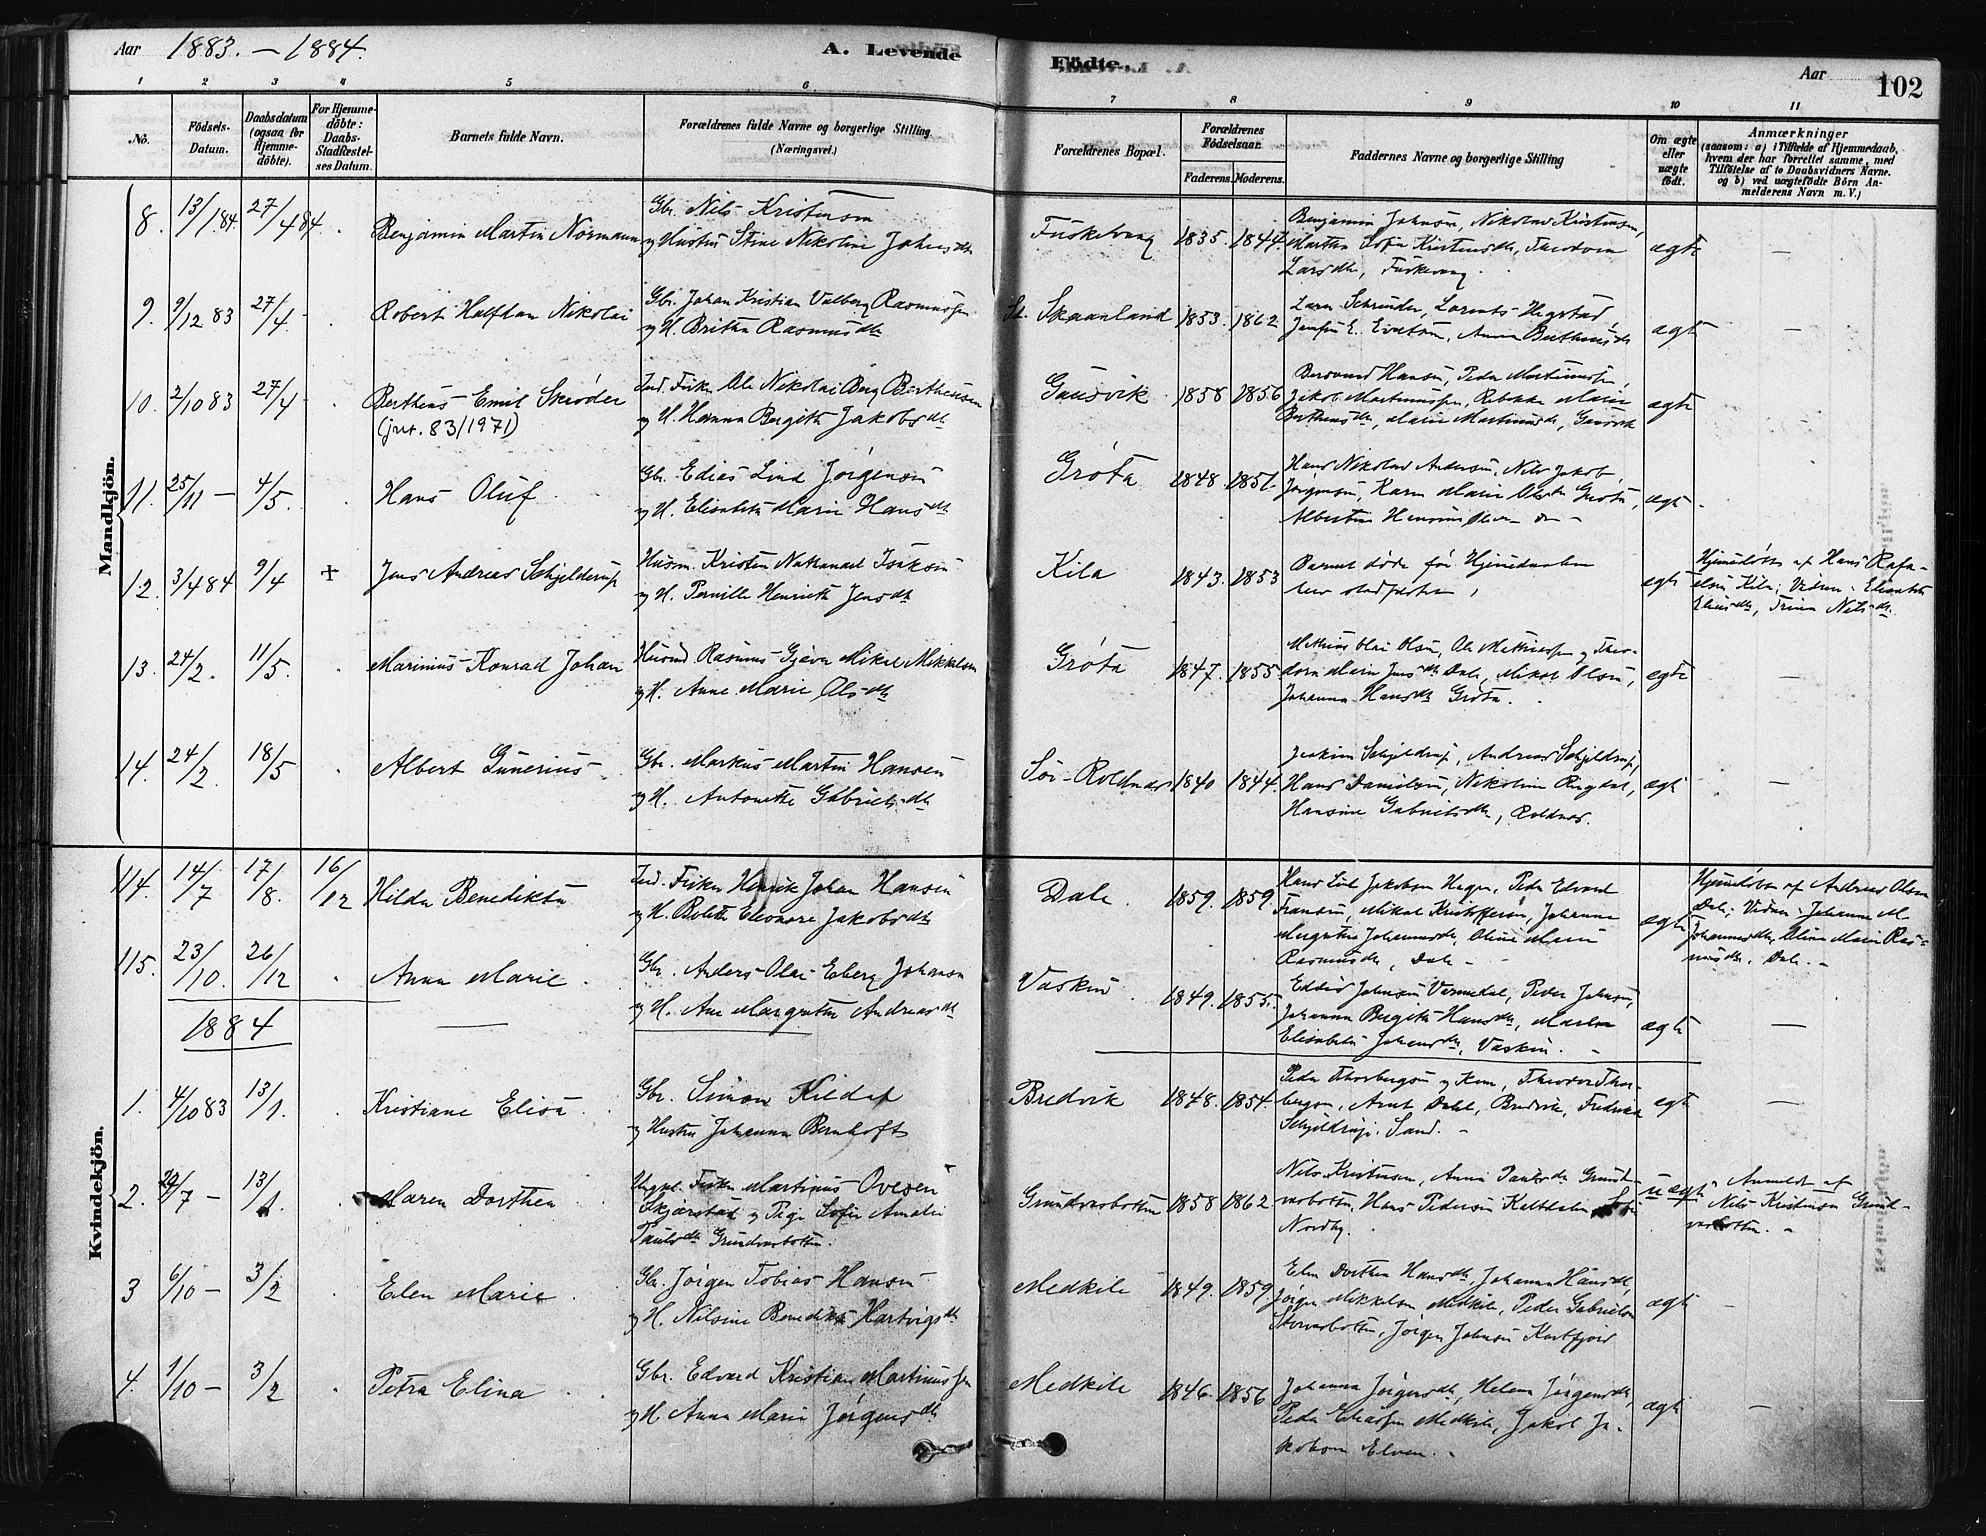 Aar 1883. – 1884.
A. Levende Födte.
Aar
102
1 2 3 4 5 6 7 8 9 10 11
No.
Födsels-Datum.
Daabsdatum (ogsaa for Hjemme-döbte).
For Hjemme-döbte: Daabs-Stadfæstel-ses Datum.
Barnets fulde Navn.
Forældrenes fulde Navne og borgerlige Stilling (Næringsvei.)
Forældrenes Bopæl.
Forældrenes Födselsaar.
Faderens. Moderens.
Faddernes Navne og borgerlige Stilling
Om ægte eller uægte födt.
Anmærkninger
(saasom: a) i Tilfælde af Hjemmedaab, hvem der har forrettet samme, med Tilföielse af to Daabsvidners Navne. og b) ved uægtefödte Börn Anmelderens Navn m. V.)
Mandkjön.
8. 13/1 84. 27/4 84. Benjamin Martin Normann
Gbr. Nils Kristensen
og Hustru Stine Nikoline Johnsdtr
Fuskevaag 1835. 1844.
Benjamin Johnsen, Nikolai Kristensen,
Martha Sofie Kristensdtr,
Larsdtr, Fuskevaag.
ægte –
9. 9/12 83 27/4. Robert Halfdan Nikolai
Gbr. Johan Kristian Valberg Rasmussen
og H. Britha Rasmusdtr
St. Skaanland 1853. 1862
Lorents Hegstad
Anna Bertheusdtr
ægte –
10. 2/10 83 27/4 Bertheus Emil Skrøder
(jvr. 83/1971)
Ind. Fisker Ole Nikolai Berg Bertheusen
og H. Hanna Bergith Jakobsdtr
Gausvik 1858 1856
Hansen, Peder Martinussen,
Jakob Martinussen, Rebekka Marie
Bertheusdtr, Marie Martinusdtr, Gausvik
ægte
11. 25/11 – 4/5. Hans Oluf
Gbr. Edias Lind Jørgensen
og H. Elisabeth Marie Hansdtr
Grøta 1848 1851.
Hans Nikolai Andersen, Nils Jakob
Jørgensen, Karen Marie Olsdtr Grøta,
Albertine
ægte
12. 3/4 84 9/4 + Jens Andreas Schjelderup
Husm. Kristen Nathanael Isaksen
og H. Pernille Henriette Jensdtr
Kila 1843. 1853
Barnet døde før Hjemmedaaben
blev stadfæstet.
ægte
Hjemmedøbt af Hans Rafa-
elsen Kila; Vidner: Elisabeth
Eliasdtr, Trine Nilsdtr.
13. 24/2. 11/5. Marinius Konrad Johan
Husmd Rasmus Gjeva Mikal Mikkelsen
og H. Anne Marie Olsdtr
Grøta 1847. 1855.
Mathias Olai Olsen, Ole Mathiassen og Theo-
dora Marie Jensdtr Dale, Mikal Olsen,
Johanna Hansdtr Grøta.
ægte –
14. 24/2. 18/5 Albert Gunerius
Gbr. Markus Martin Hansen
og H. Antonette Gabrielsdtr
Sør-Roldnæs 1840 1844.
Joakim Schjeldrup, Andreas Schjeldrup,
Hans Danielsen, Nikoline Ringdal,
Hansine Gabrielsdtr, Roldnæs.
ægte –
Kvindekjön.
114. 14/7 17/8. 16/12 Hilda Benedikta
Ind. Fisker Henrik Johan Hansen
og H. Bolette Eleonore Jakobsdtr
Dale. 1859. 1859.
Hans Jakobsen Hegen, Peder Edvard
Fransen, Mikal Kristoffersen, Johanna
Margrethe Johannesdtr, Oline Marie
Rasmusdtr, Dale –
ægte
Hjemmedøbt af Andreas Olsen
Dale; Vidner: Johanna M.
Johannesdtr, Oline Marie Ras-
musdtr. Dale. –
115. 23/10. 26/12 Anna Marie
Gbr. Anders Olai Eberg Johansen
og H. Ane Margrethe Andreasdtr
Vaskin 1849. 1855.
Johnsen Varmedal, Peder Johnsen,
Johanna Bergith Hansdtr,
Elisabeth Johansdtr, Vaskin. –
ægte –
1884
1. 4/10 83 13/1. Kristiane Elisa
Gbr. Simon Kildal
og Hustru Johanna Bernhoft
Bredvik 1848. 1854.
Peder Thorbergsen og Kone, Theodor Thor-
bergsen, Arnt Dahl, Bredvik, Fredrikke
Schjeldrup, Sand. –
ægte –
2. 29/7 – 13/1. Maren Dorthea
Ungkl. Fisker Martinus Ovesen
Skjærstad og Pige Sofie Amalie
Paulsdtr Grundvasbotten.
Grundvasbotten 1858 1862
Nils Kristensen, Anna Paulsdtr Grund-
vasbotten, Hans Pedersen
Nordby.
uægte
Anmeldt af
Nils Kristensen Grund-
vasbotten. –
3 6/10 – 3/2 Elen Marie
Gbr. Jørgen Tobias Hansen
og H. Nilsine Benedikte Hartvigsdtr
Medkile 1849. 1859.
Elen Dorthea Hansdtr, Johanna Hansdtr,
Jørgen Mikkelsen Medkile, Peder Gabrielsen
Storvasbotten, Jørgen Johnsen Kasfjord
ægte –
4. 1/10 – 3/2 Petra Elina
Gbr. Edvard Kristian Martinussen
og H. Anna Marie Jørgensdtr
Medkile 1846. 1856
Johanna Jørgensdtr, Helene Jørgensdtr,
Peder Eliassen Medkile, Jakob Ja-
kobsen Elven. –
ægte –